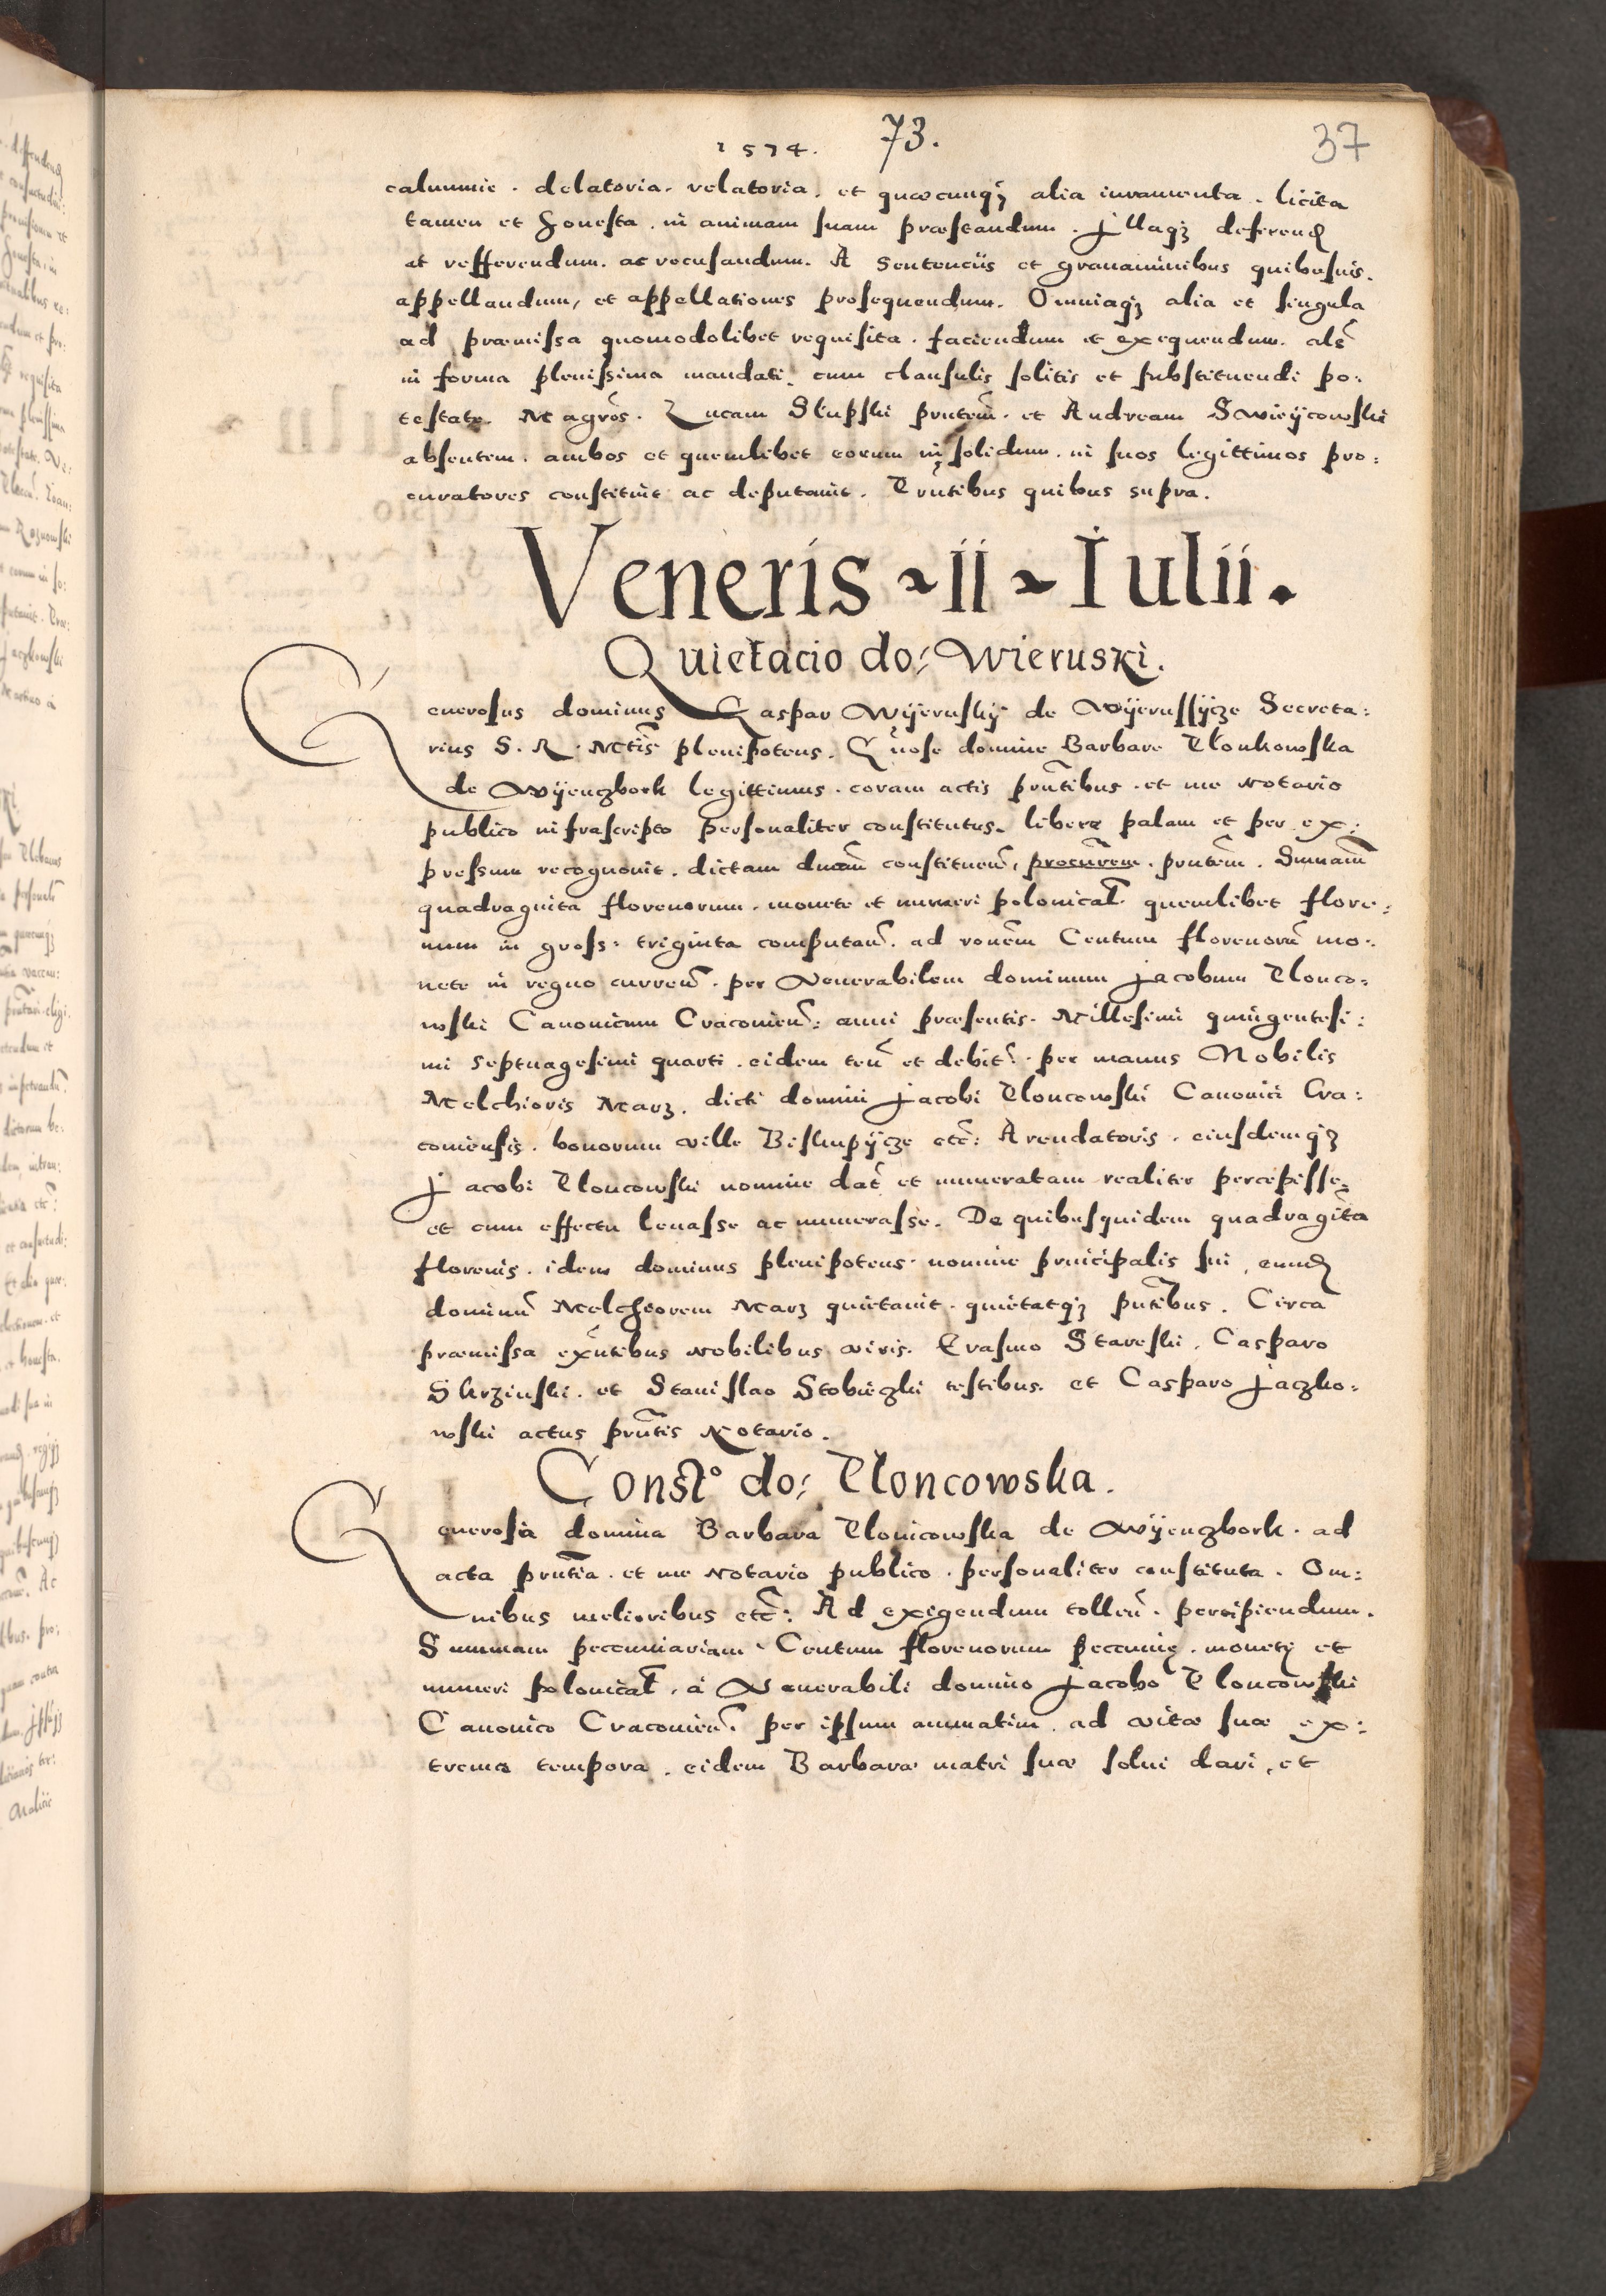 1574. 73. 37
calumnie. delatoria. relatoria. et quæcunqȝ alia iuramenta. licita
tamen et honesta. in animam suam præstandum. Illaqȝ deferend
et refferendum. ac recusandum. A sentenciis et grauaminibus quibusuis.
appellandum, et appellationes prosequendum. Omniaqȝ alia et singula
ad præmissa quomodolibet requisita. faciendum et exequendum. als̃
in forma plenissima mandati. cum clausulis solitis et substituendi po:
testate. Magr̃os. Lucam Slupski pñtem̃. et Andream Swieÿcowski
absentem. ambos et quemlibet eorum in solidum. in suos legittimos pro:
curatores constituit ac deputauit. Pñtibus quibus supra.
Veneris ~ ii ~ Iulii.
Quietacio do: Wieruski.
Generosus dominus Caspar Wÿerusky de Wÿerussÿcze Secreta:
rius S. R. Mtis̃ plenipotens. Gñose domine Barbare Tlonkowska
de Wÿenczbork legittimus. coram actis pñtibus. et me Notario
publico infrascripto personaliter constitutus. libere palam et per ex:
pressum recognouit. dictam dnam̃ constituen̄, procur̃em. pñtem̃. Summam̃
quadraginta florenorum. monete et numeri polonical̃. quemlibet flore:
num in gross: triginta computan̄. ad ronẽm Centum florenorũ mo:
nete in regno curren̄. per Venerabilem dominum Jacobum Tlonco:
wski Canonicum Cracouien̄: anni præsentis. Millesimi quingentesi:
mi septuagesimi quarti. eidem ten̄ et debit̃. per manus Nobilis
Melchioris Marz. dicti domini Jacobi Tloncowski Canonici Cra:
couiensis. bonorum ville Biskupÿcze etc̃: Arendatoris. eiusdemqȝ
Jacobi Tloncowski nomine dat̃ et numeratam realiter percepisse:
et cum effectu leuasse ac numerasse. De quibusquidem quadragīta
florenis. idem dominus plenipotens. nomine principalis sui, eund
dominũ Melchiorem Marz quietauit. quietatqȝ pñtibus. Circa
præmissa exñtibus Nobilibus viris. Erasmo Stareski. Casparo
Skrzinski. et Stanislao Stobieczki testibus. et Casparo Jaczko:
wski actus pñtis Notario.
Const̃o do: Tloncowska.
Generosa domina Barbara Tlonicowska de Wÿenczbork. ad
acta pñtia. et me Notario publico. personaliter constituta. Om:
nibus melioribus etc̃: Ad exigendum tollen̄. percipiendum.
Summam peccuniariam. Centum florenorum peccunie. monetę et
numeri polonical̃. à Venerabili domino Jacobo Tloncowski
Canonico Cracouien̄. per ipsum annuatim. ad vitæ suæ ex:
trema tempora. eidem Barbaræ matri suæ solui dari, et